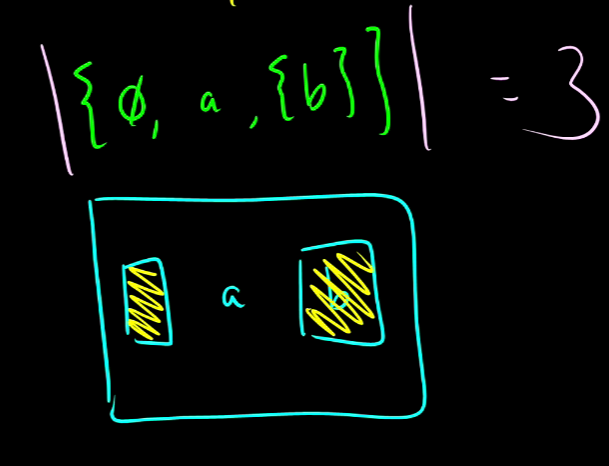 |{∅, a, {b}}| = 3
a b